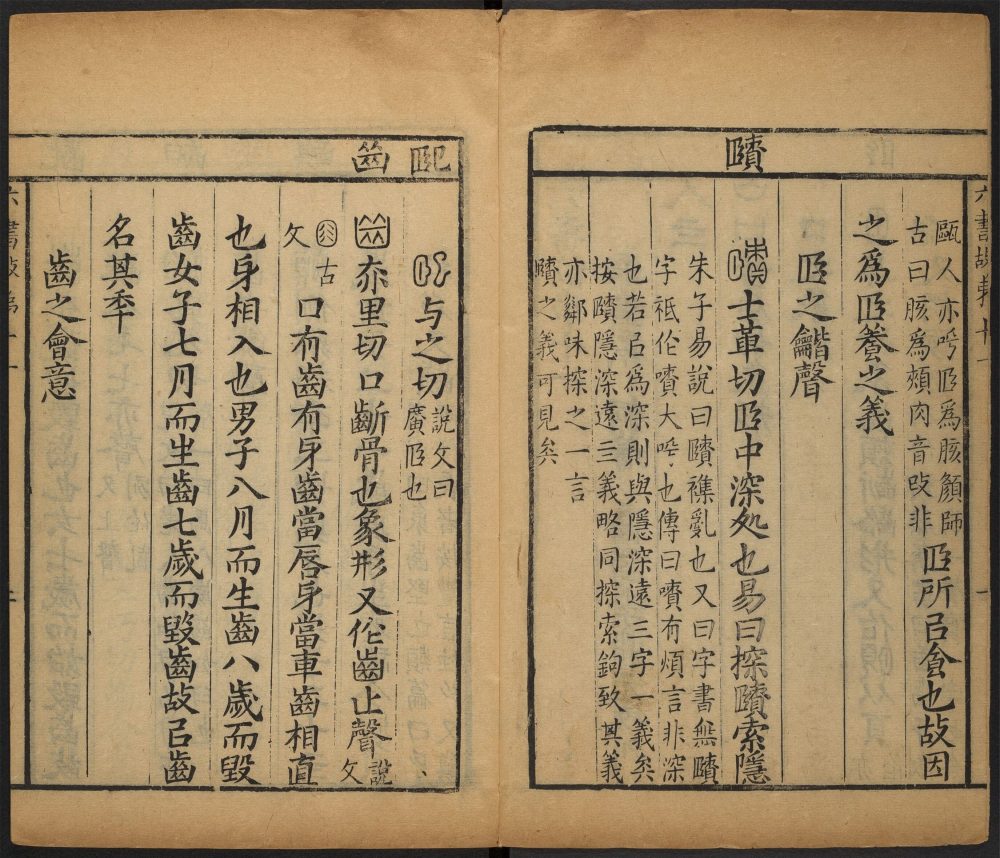 賾
甌人亦呼𦣝爲胲顏師
古曰胲爲頰肉音改非
𦣝所㠯食也故因
之爲𦣝養之義
𦣝之龤聲
士革切𦣝中深処也易曰探賾索隱
朱子易說曰賾襍亂也又曰字書無賾
字祇作嘖大呼也傳曰嘖有煩言非深
也若㠯爲深則與隱深遠三字一義矣
按賾隱深遠三義略同探索鉤致其義
亦鄰味探之一言
賾之義可見矣
𦣞 齒
与之切
說文曰
廣𦣝也
亦里切口齗骨也象形又作齒止聲
說文
古文
口有齒有牙齒當唇牙當車齒相直
也牙相入也男子八月而生齒八歲而毀
齒女子七月而生齒七歲而毀齒故㠯齒
名其年
齒之會意